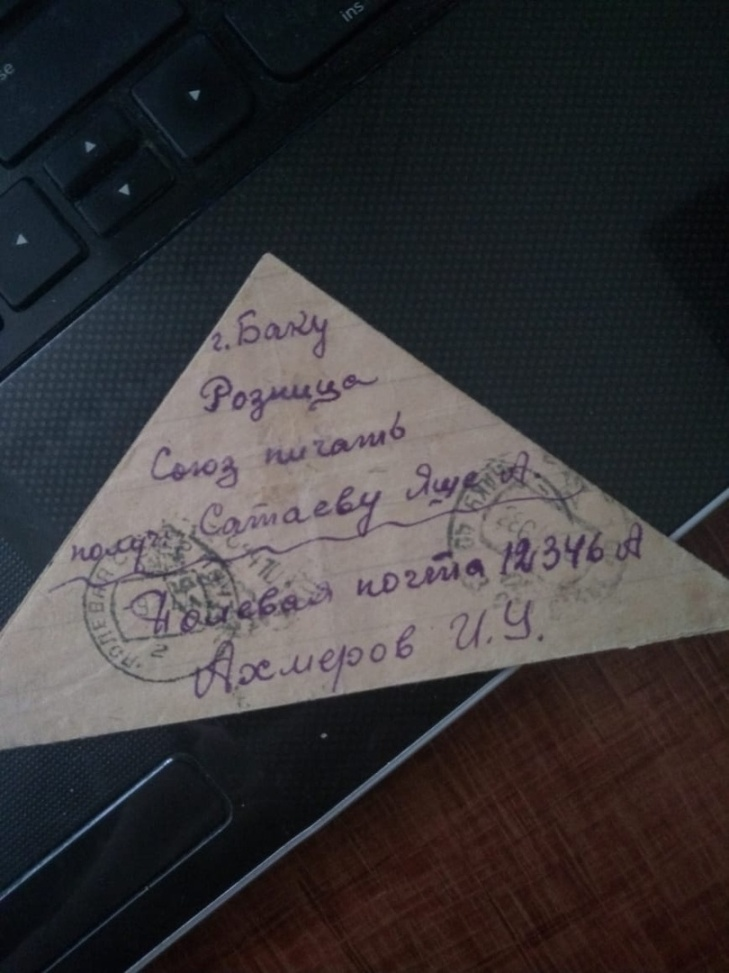 se
ins
г. Баку
Розница
Союз пичать
получ. Сатаеву Яше А.
Полевая почта 12346 А
Ахмеров И.У.
ПОЛЕВАЯ